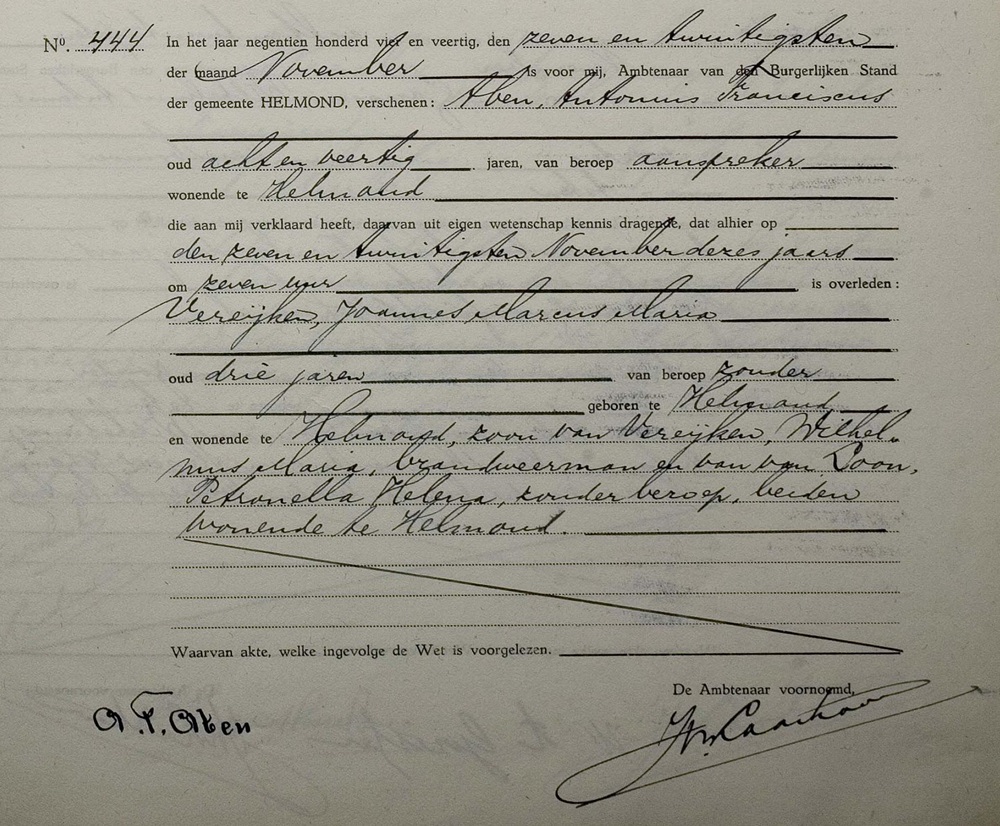 Nº. 444 In het jaar negentien honderd vier en veertig, den zeven en twintigsten
der maand November is voor mij, Ambtenaar van den Burgerlijken Stand
der gemeente HELMOND, verschenen: Aben, Antonius Franciscus
oud acht en veertig jaren, van beroep aanspreker
wonende te Helmond
die aan mij verklaard heeft, daarvan uit eigen wetenschap kennis dragende, dat alhier op
den zeven en twintigsten November dezes jaars
om zeven uur is overleden:
Vereijken, Joannes Marcus Maria
oud drie jaren van beroep zonder
geboren te Helmond
en wonende te Helmond, zoon van Vereijken, Wilhel-
mus Maria, brandweerman en van van Loon,
Petronella Helena, zonder beroep, beiden
wonende te Helmond.
Waarvan akte, welke ingevolge de Wet is voorgelezen.
De Ambtenaar voornoemd,
A.F. Aben